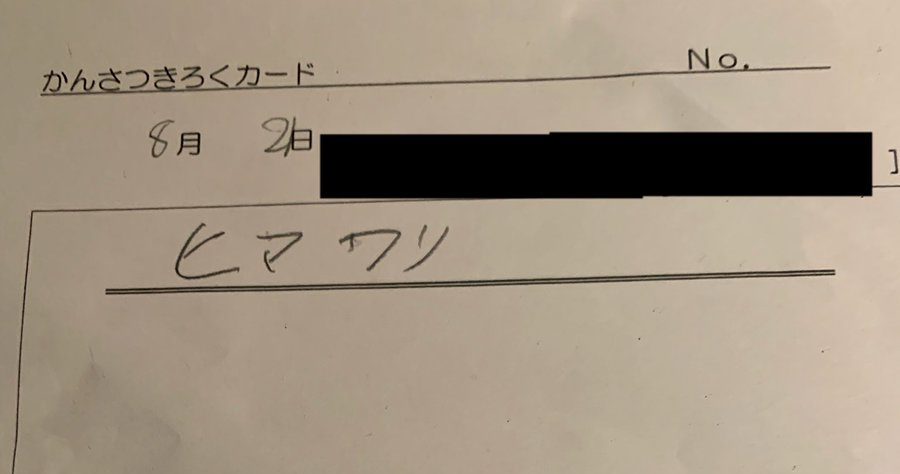 かんさつきろくカード No.
8月 21日 ]
ヒマワリ